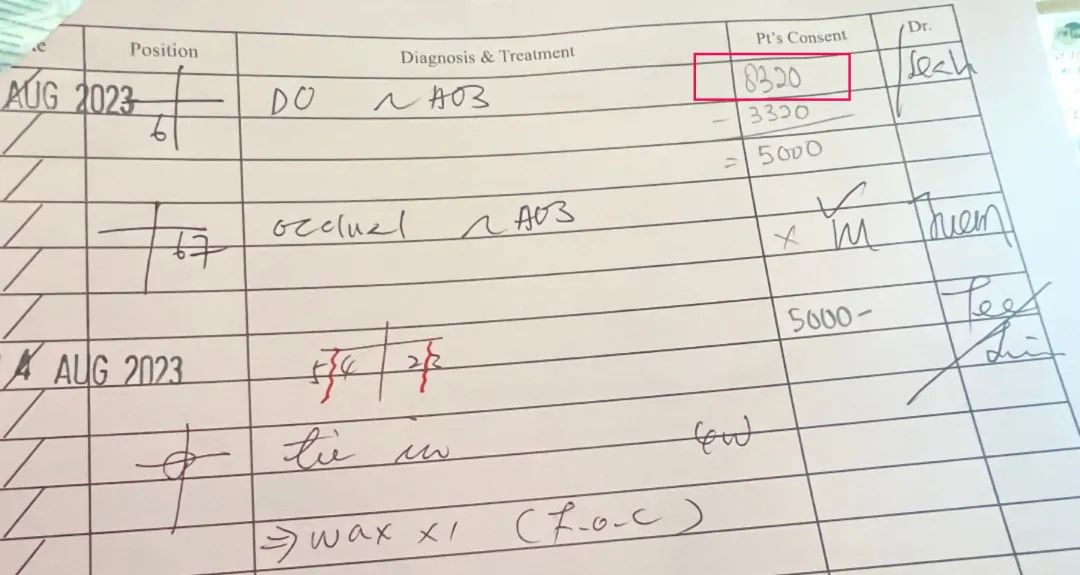 Position Diagnosis & Treatment Pt's Consent Dr.
AUG 2023 DO ~ AO3 8320
6 - 3320
= 5000
occlusal ~ AO3 ✓
67 x M
5000-
AUG 2023 5 4 2 3
tie in
⇒ wax x1 (F.o.c)